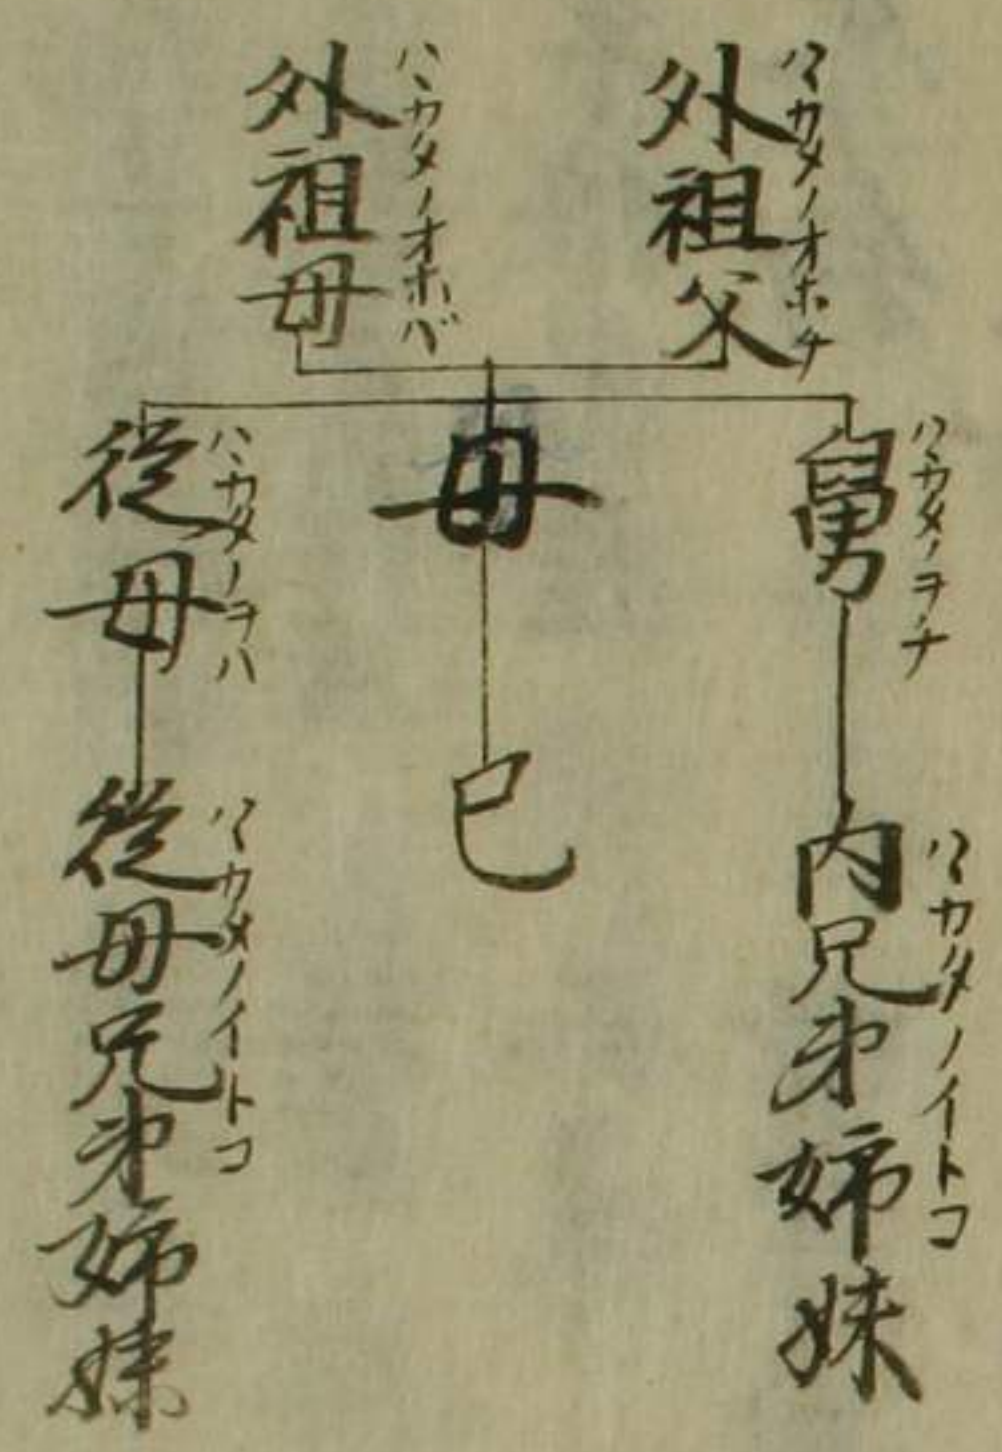 外祖父
ハヽカタノオホチ
外祖母
ハヽカタノオホバ
舅
ハヽカタノヲチ
母
從母
ハヽカタノヲハ
内兄弟姉妹
ハヽカタノイトコ
己
從母兄弟姉妹
ハヽカタノイトコ